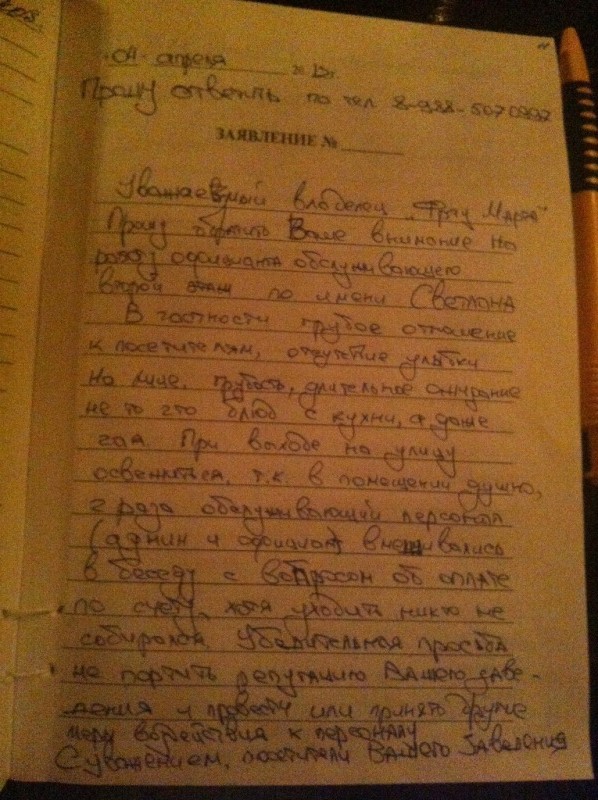 04 апреля 20 13г.
Прошу ответить по тел 8-988-5070992
ЗАЯВЛЕНИЕ №
Уважаемый владелец „Фрау Марта"
Прошу обратить Ваше внимание на
работу официанта обслуживающего
второй этаж по имени Светлана
В частности грубое отношение
к посетителям, отсутствие улыбки
на лице, грубость, длительное ожидание
не то что блюд с кухни, а даже
чая. При выходе на улицу
освежиться, т.к. в помещении душно,
2 раза обслуживающий персонал
(админ и официант) вмешивались
в беседу с вопросом об оплате
по счету, хотя уходить никто не
собирался. Убедительная просьба
не портить репутацию Вашего заве-
дения и провести или принять другие
меры воздействия к персоналу
С уважением, посетители Вашего Заведения